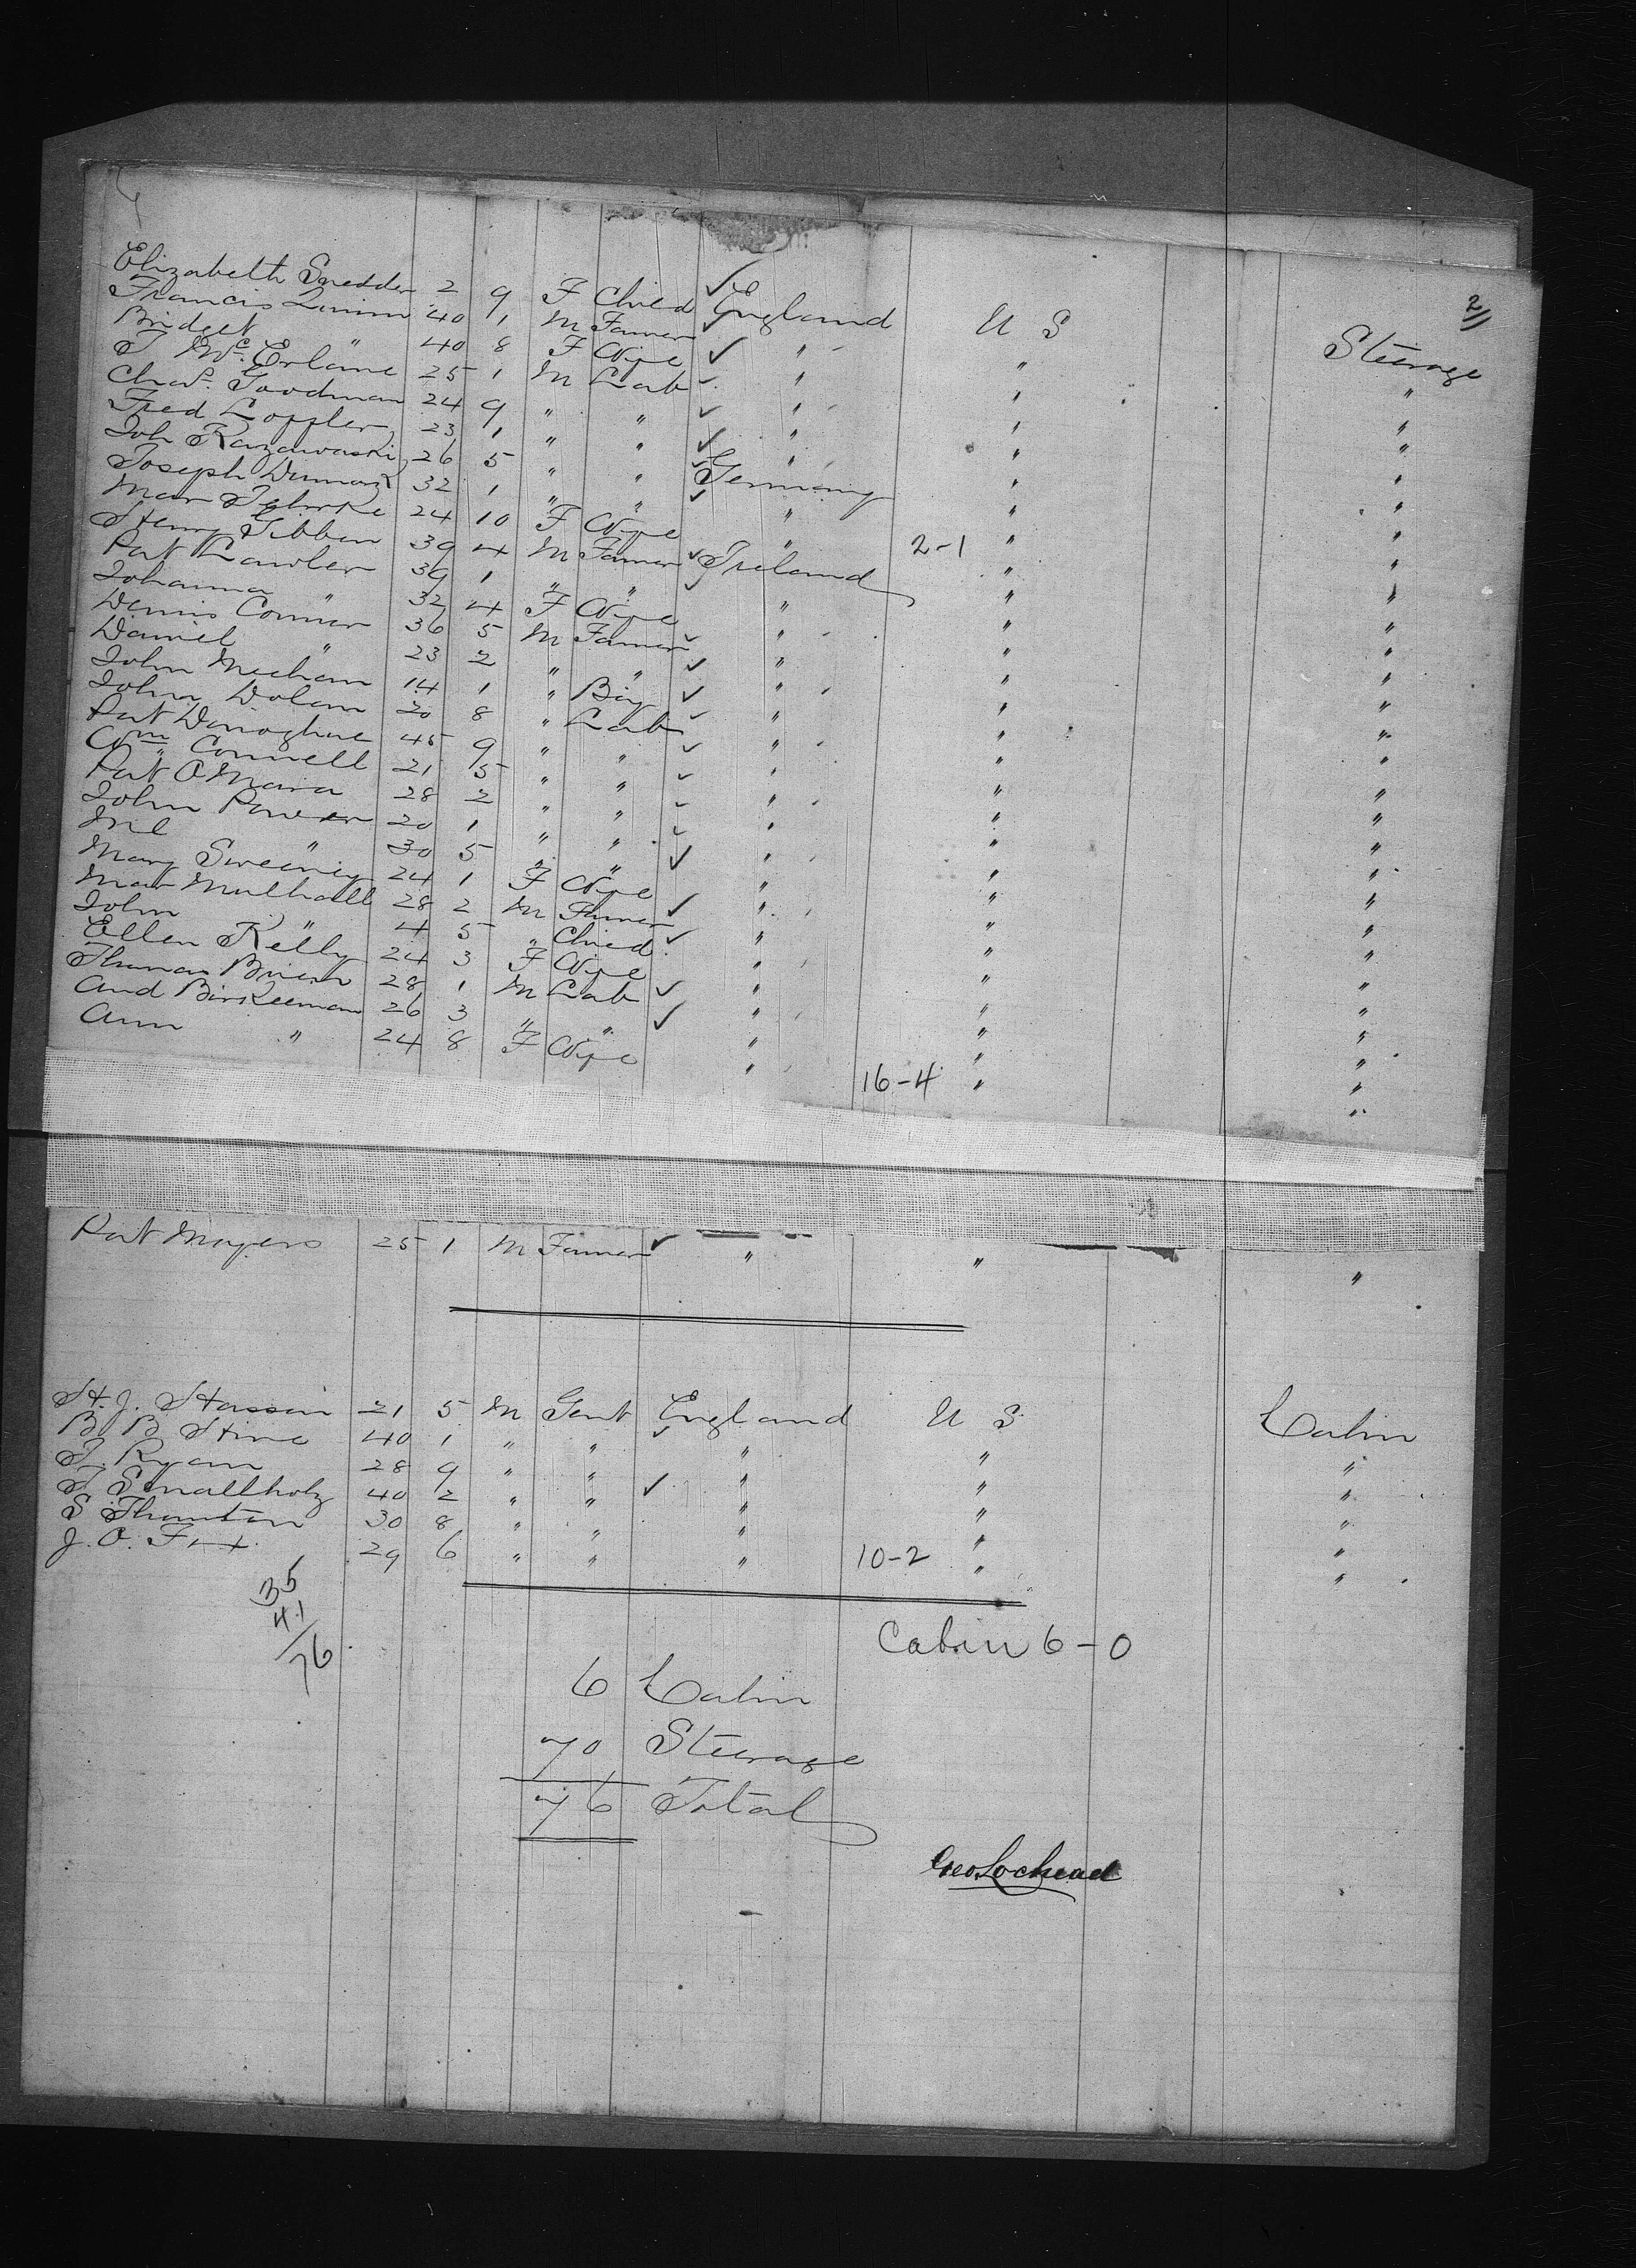 2
Elizabeth Snedden 2 9 F Child ✓ England U S Steerage
Francis Quinn 40 1 M Farmer ✓ " " "
Bridget " 40 8 F Wife ✓ " " "
J McErlane 25 1 M Lab ✓ " " "
Chas. Goodman 24 9 " " ✓ " " "
Fred Loppler 23 1 " " ✓ " " "
Joh Razawaski 26 5 " " ✓ Germany " "
Joseph 32 1 " " ✓ " " "
24 10 F Wife " 2-1 " "
Henry Gibben 39 4 M Farmer ✓ Ireland " "
Pat Lawler 39 1 " " ✓ " " "
Johanna " 32 4 F Wife " " "
Dennis Connor 36 5 M Farmer ✓ " " "
Daniel " 23 2 " " ✓ " " "
John Meehan 14 1 " Boy ✓ " " "
John Dolan 20 8 " Lab ✓ " " "
Pat Donoghue 45 9 " " ✓ " " "
Wm Connell 21 5 " " ✓ " " "
Pat O'Mara 28 2 " " ✓ " " "
John Power 20 1 " " ✓ " " "
Ml " 30 5 " " ✓ " " "
Mary Sweeney 24 1 F Wife " " "
Mat Mulhall 28 2 M Farmer ✓ " " "
John " 4 5 " Child ✓ " " "
Ellen Kelly 24 3 F Wife " " "
Thomas Brien 28 1 M Lab ✓ " " "
And Birkeeman 26 3 " " ✓ " " "
Ann " 24 8 F Wife " 16-4 " "
Pat Mayers 25 1 M Farmer ✓ " " "
H. J. Hassin 21 5 M Gent England U S Cabin
B B Hine 40 1 " " ✓ " " "
J. Ryan 28 9 " " " " "
J Smallholz 40 2 " " ✓ " " "
S Thornton 30 8 " " " " "
J. O. Fox 29 6 " " " 10-2 " "
35
41
76
Cabin 6-0
6 Cabin
70 Steerage
76 Total
Geo Lochead